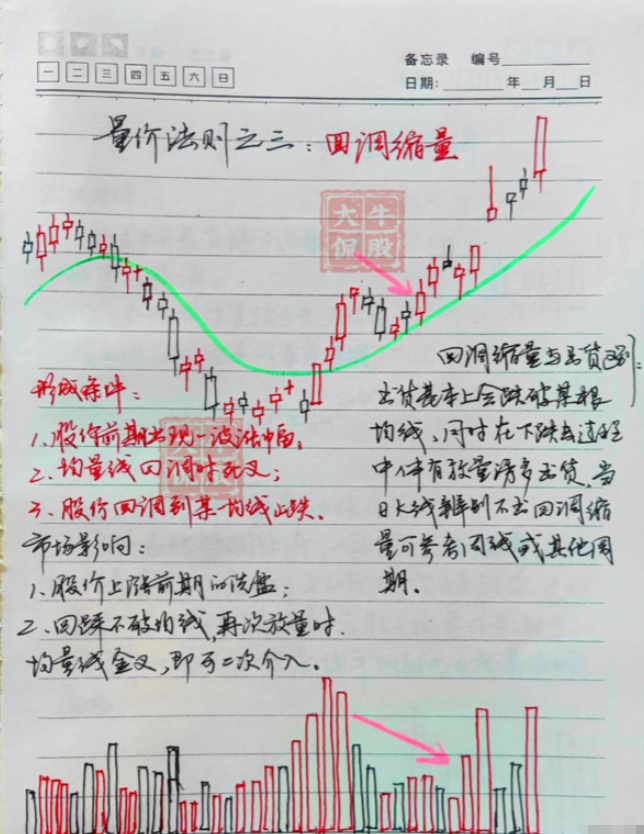 备忘录 编号
一 二 三 四 五 六 日
日期: 年 月 日
量价法则之三：回调缩量
大牛
侃股
形成条件：
1、股价前期出现一波涨幅。
2、均量线回调时死叉；
3、股价回调到某一均线止跌。
市场影响：
1、股价上涨前期的洗盘；
2、回踩不破均线，再次放量时.
均量线金叉，即可二次介入。
回调缩量与出货区别：
出货基本上会跌破某根
均线、同时在下跌过程
中伴有放量诱多出货，当
日K线辨别不出回调缩
量可参考周线或其他周
期．